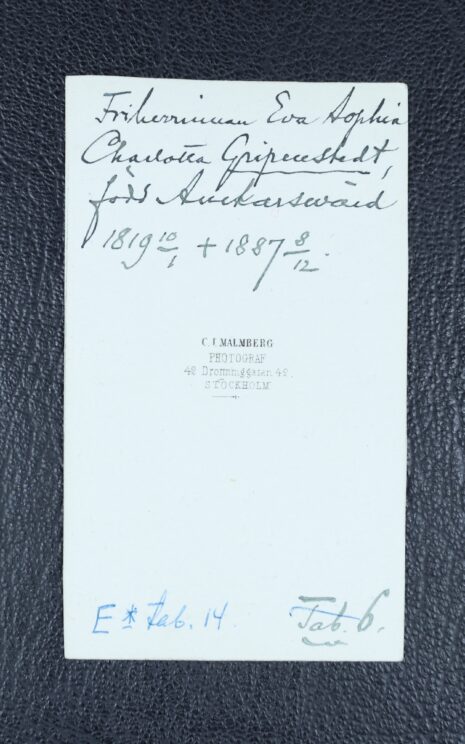 Friherrinnan Eva Sophia
Charlotta Gripenstedt,
född Anckarsward
1819 10/1 + 1887 8/12.
C. J. MALMBERG
PHOTOGRAF
42 Drottninggatan 42.
STOCKHOLM
E * tab. 14.
Tab. 6.